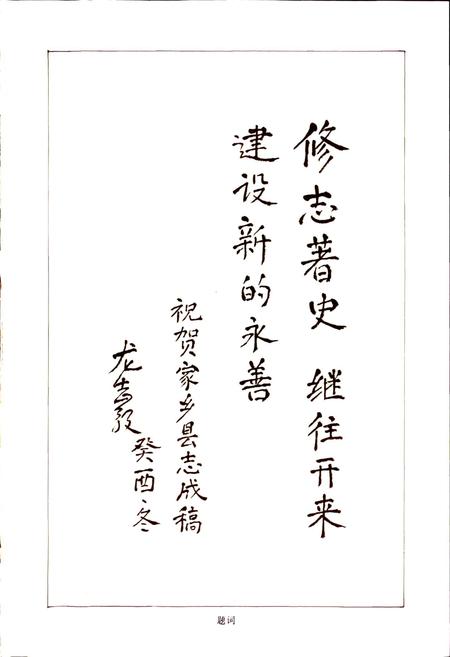 修志著史 继往开来
建设新的永善
祝贺家乡县志成稿
龙
癸酉·冬
题词